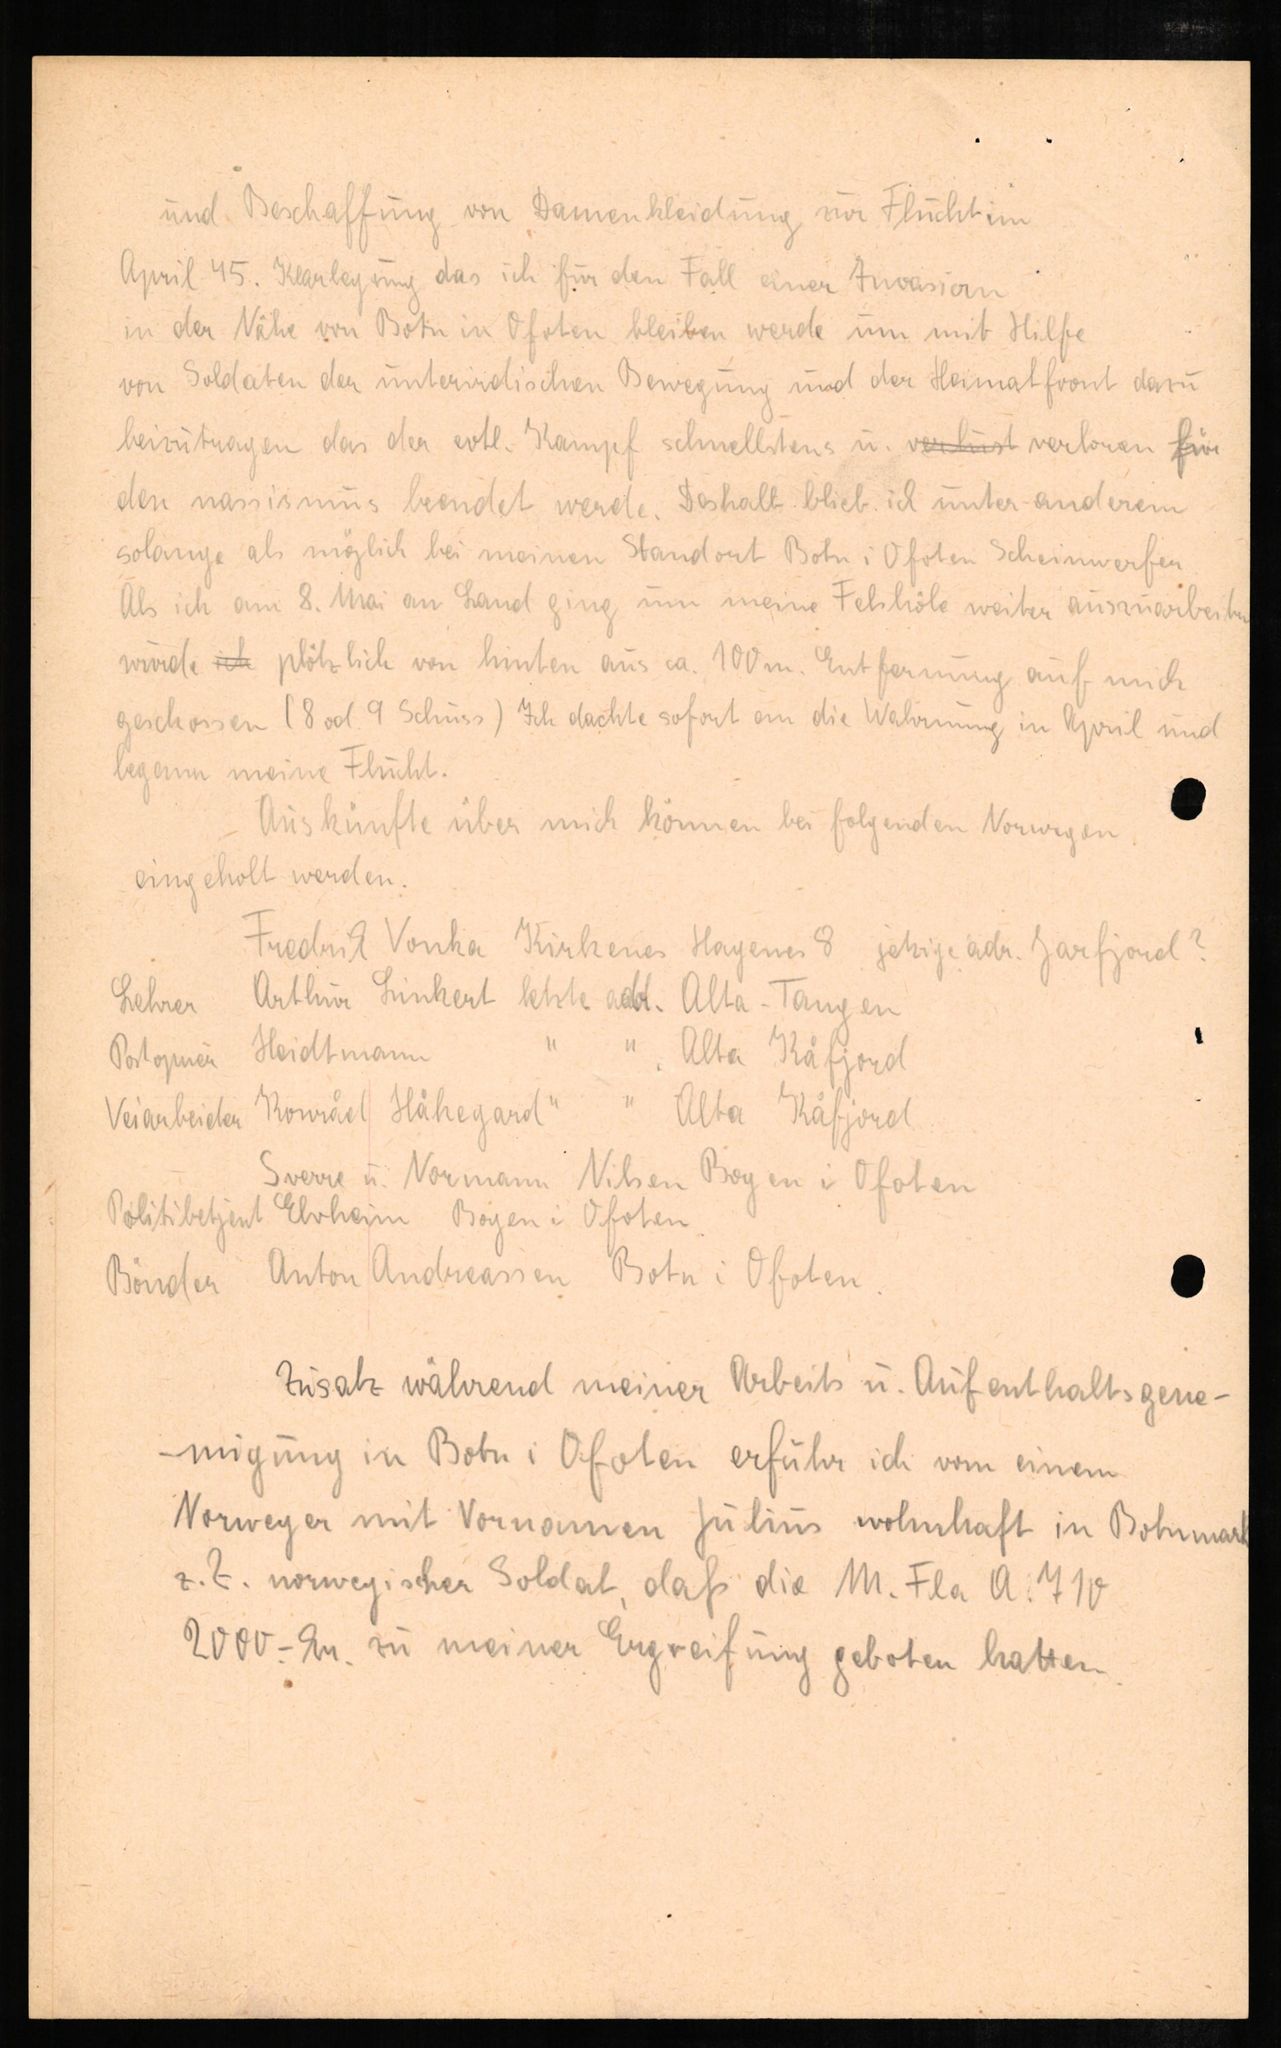 und Beschaffung von Damenkleidung zur Flucht im
April 45. Klarlegung das ich für den Fall einer Invasion
in der Nähe von Botn in Ofoten bleiben werde um mit Hilfe
von Soldaten der unterirdischen Bewegung und der Heimatfront dazu
beizutragen das der evtl. Kampf schnellstens u. verlust verloren für
den nassismus beendet werde. Deshalb blieb ich unter anderem
solange als möglich bei meinen Standort Botn i Ofoten Scheinwerfer.
Als ich am 8. Mai an Land ging um meine Felshöle weiter auszuarbeiten
wurde ich plötzlich von hinten aus ca. 100 m. Entfernung auf mich
geschossen (8 od. 9 Schuss) Ich dachte sofort an die Wahrnung in April und
begann meine Flucht.
Auskünfte über mich können bei folgenden Norwegen
eingeholt werden.
Fredrik Vonka Kirkenes Hagenes 8 jetzige adr. Jarfjord?
Lehrer Arthur Linkert letzte adr. Alta - Tangen
Postopner Heidtmann " ". Alta Kåfjord
Veiarbeider Konråd Håkegard " " Alta Kåfjord
Sverre u. Normann Nilsen Bogen i Ofoten
Politibetjent Elvheim Bogen i Ofoten
Bönder Anton Andreassen Botn i Ofoten.
Zusatz während meiner Arbeits u. Aufenthaltsgene-
-migung in Botn i Ofoten erfuhr ich vom einem
Norweger mit Vornamen Julius wohnhaft in Botnmark
z. Z. norwegischer Soldat, daß die M. Fla A. 710
2000 - Kr. zu meiner Ergreifung geboten hatten.